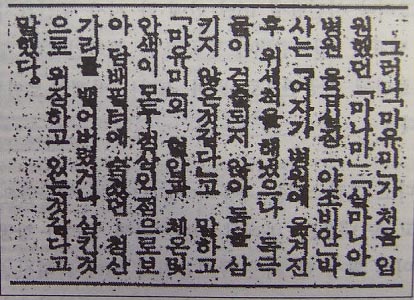 그러나 「마유미」가 처음 입
원했던 「마나마」 「살마니아」
병원 응급실장 「야코비안」박
사는 「여자가 병원에 옮겨진
후 위세척을 했었으나 독극
물이 검출되지 않아 독을 삼
키지 않은것같다」고 말하고
「마유미」의 혈액과 체온및
안색이 모두 정상인 점으로보
아 담배필터에 숨겼던 청산
가리를 뱉어버렸거나 삼킨것
으로 위장하고 있는것같다고
말했다.